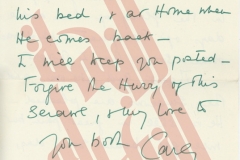 his bed, & at Home when
He comes back –
I will keep you posted –
Forgive the Hurry of this
Because, & my love to
You both